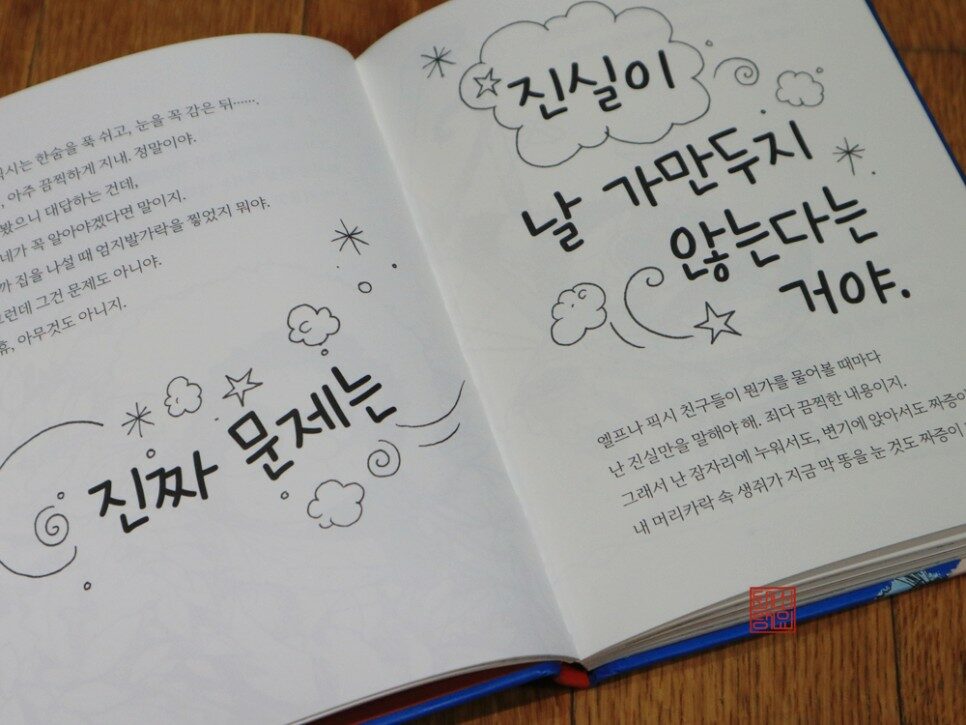 한숨을 푹 쉬고, 눈을 꼭 감은 뒤……,
아주 끔찍하게 지내. 정말이야.
대답하는 건데,
네가 꼭 알아야겠다면 말이지.
집을 나설 때 엄지발가락을 찧었지 뭐야.
그건 문제도 아니야.
휴, 아무것도 아니지.
진짜 문제는
진실이
날 가만두지
않는다는
거야.
엘프나 픽시 친구들이 뭔가를 물어볼 때마다
난 진실만을 말해야 해. 죄다 끔찍한 내용이지.
그래서 난 잠자리에 누워서도, 변기에 앉아서도 짜증이
내 머리카락 속 생쥐가 지금 막 똥을 눈 것도 짜증이